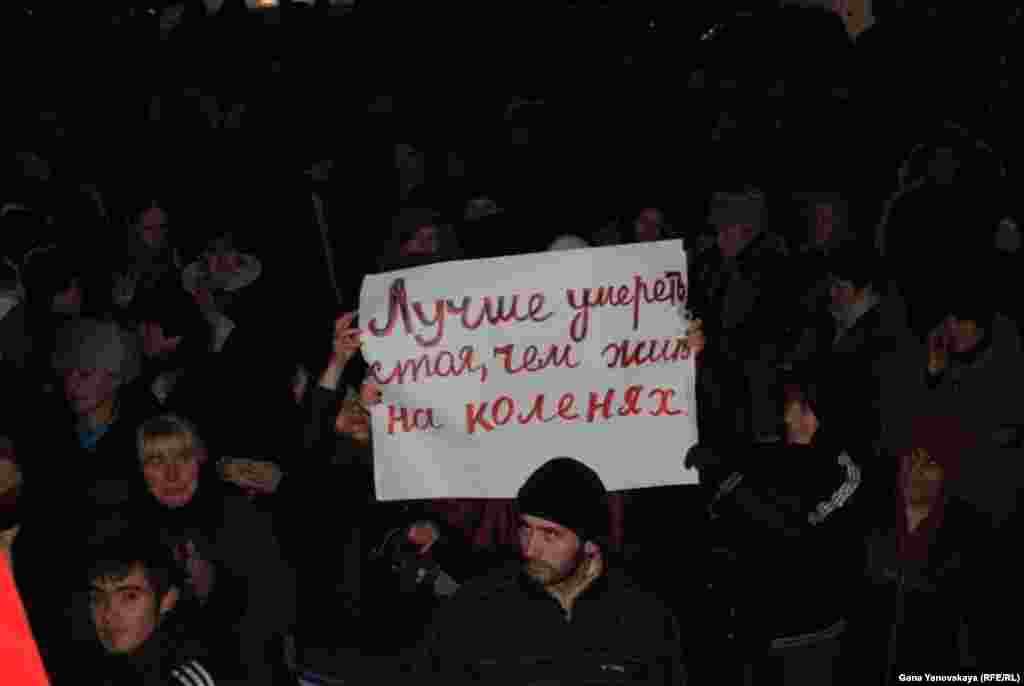 Лучше умереть
стоя, чем жить
на коленях.
Gana Yanovskaya (RFE/RL)